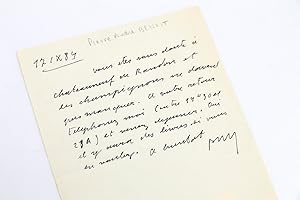 Pierre André BENOIT
17 IX 84
vous êtes sans doute à
chateauneuf de Randon et
les champignons ne doivent
pas manquer. à votre retour
telephonez moi (entre 19h30 et
et venez dejeuner. Oui
il y aura des livres si vous
en voulez. à bientot